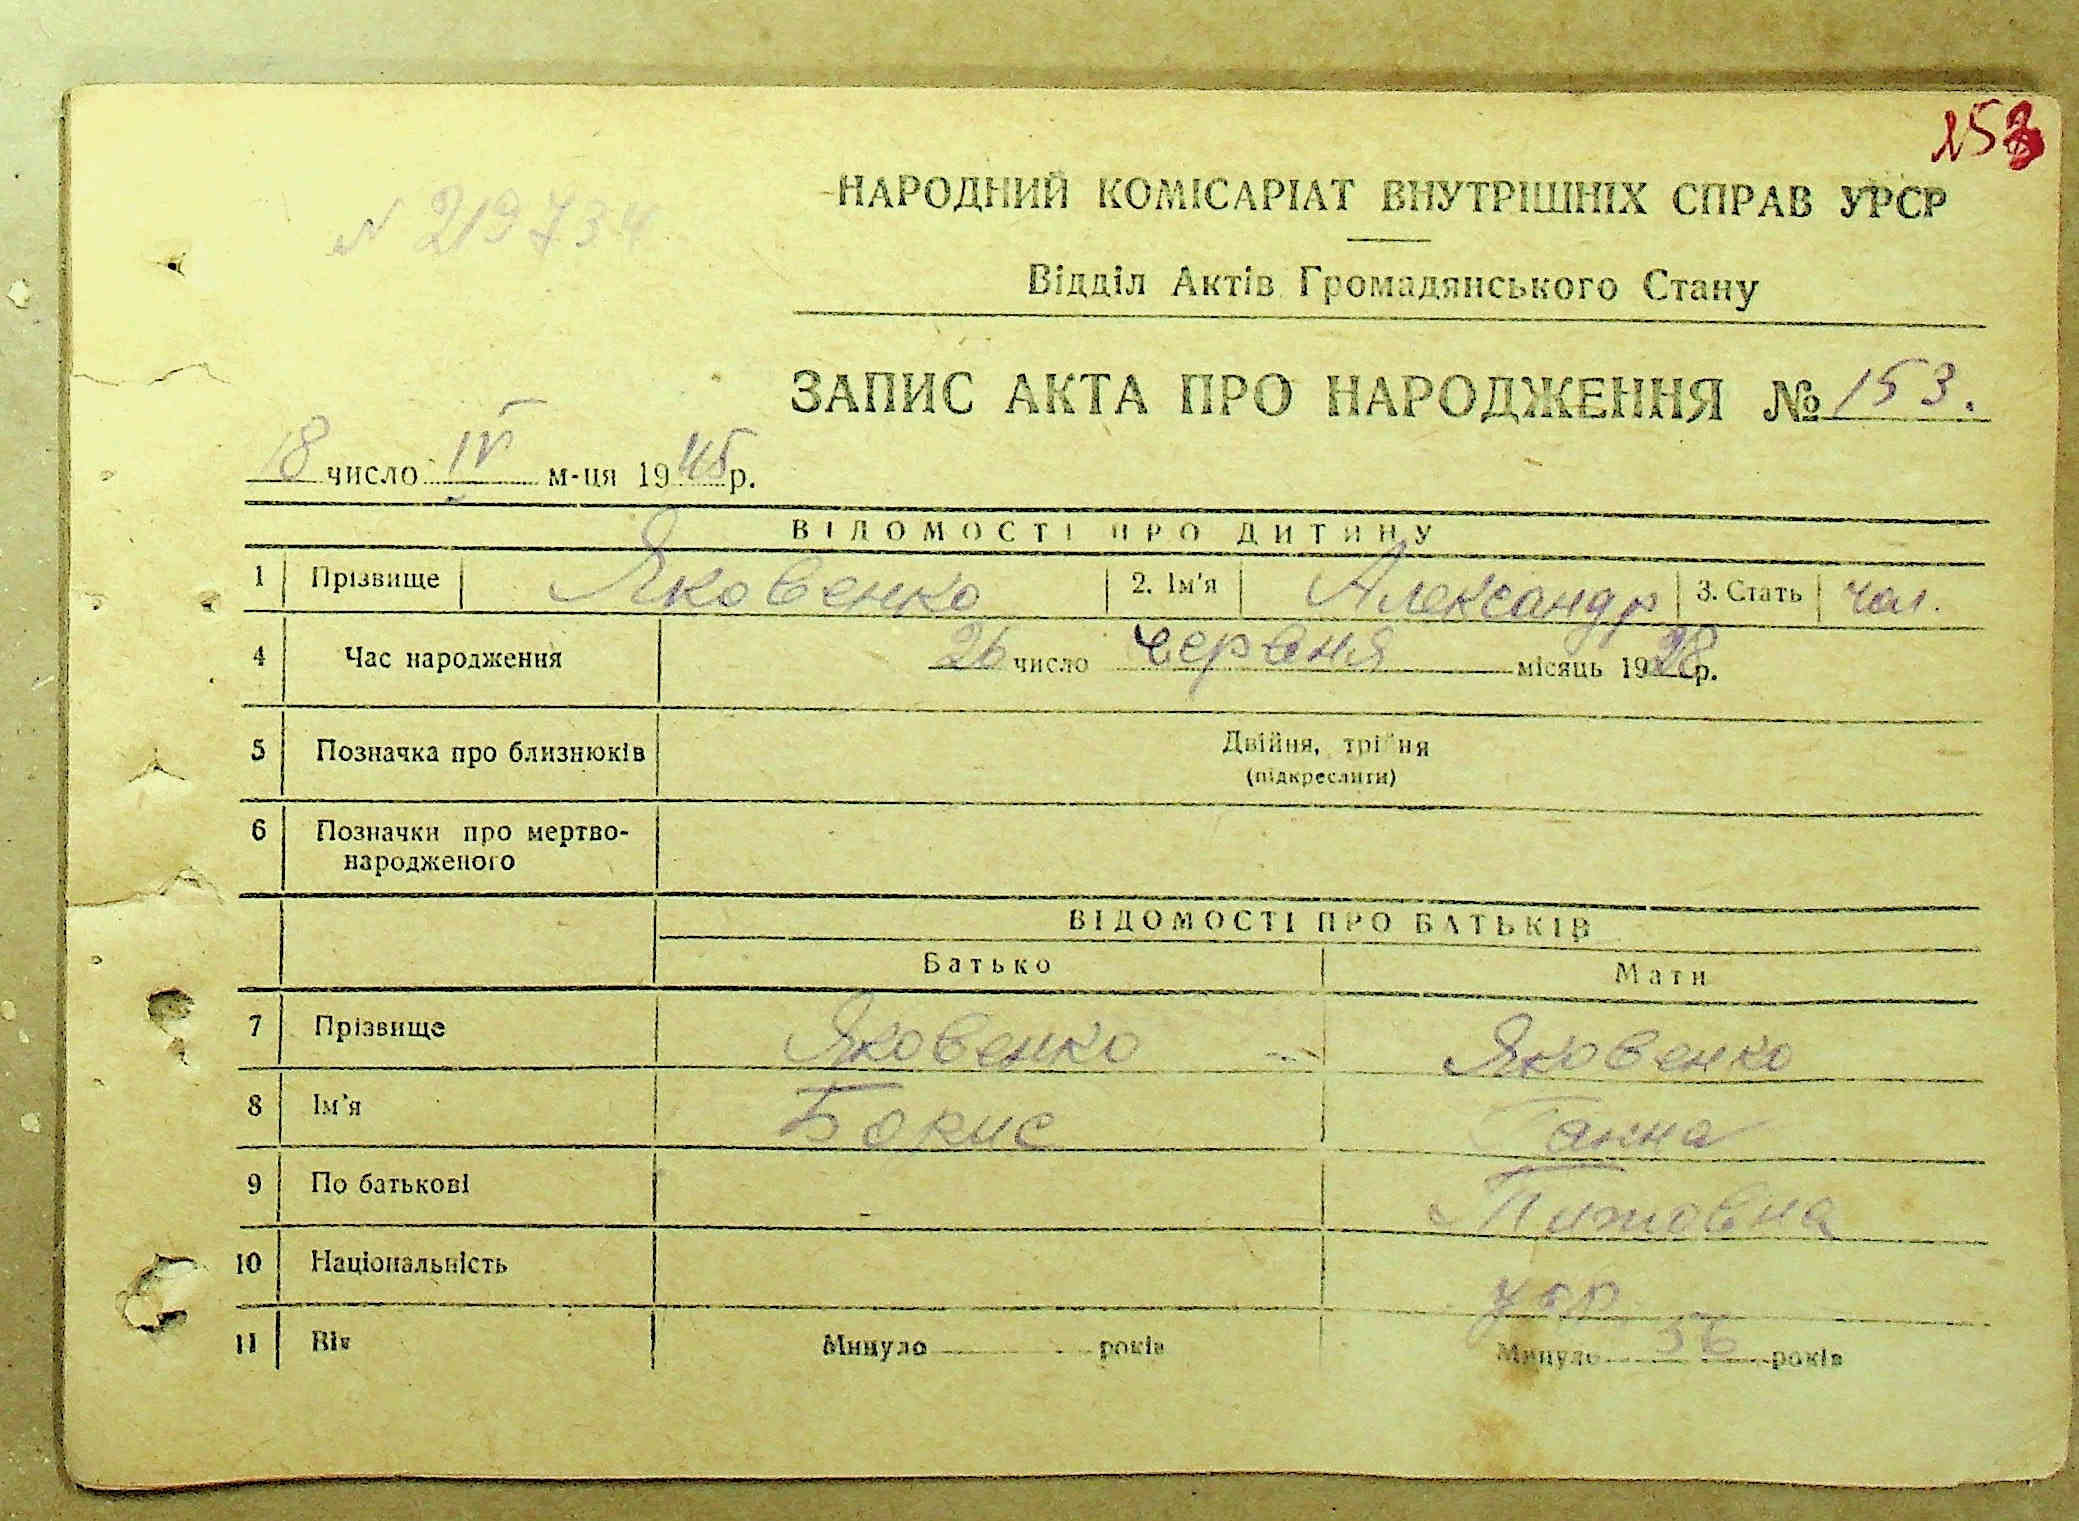 153
№ 219734
НАРОДНИЙ КОМІСАРІАТ ВНУТРІШНІХ СПРАВ УРСР
Відділ Актів Громадянського Стану
ЗАПИС АКТА ПРО НАРОДЖЕННЯ № 153.
18 число IV м-ця 1945 р.
ВІДОМОСТІ ПРО ДИТИНУ
1 Прізвище Яковенко 2. Ім'я Александр 3. Стать чол.
4 Час народження 26 число червня місяць 1928 р.
5 Позначка про близнюків Двійня, трійня
(підкреслити)
6 Позначки про мертво-
народженого
ВІДОМОСТІ ПРО БАТЬКІВ
Батько Мати
7 Прізвище Яковенко Яковенко
8 Ім'я Борис Ганна
9 По батькові Титовна
10 Національність укр
11 Вік Минуло років Минуло 36 років